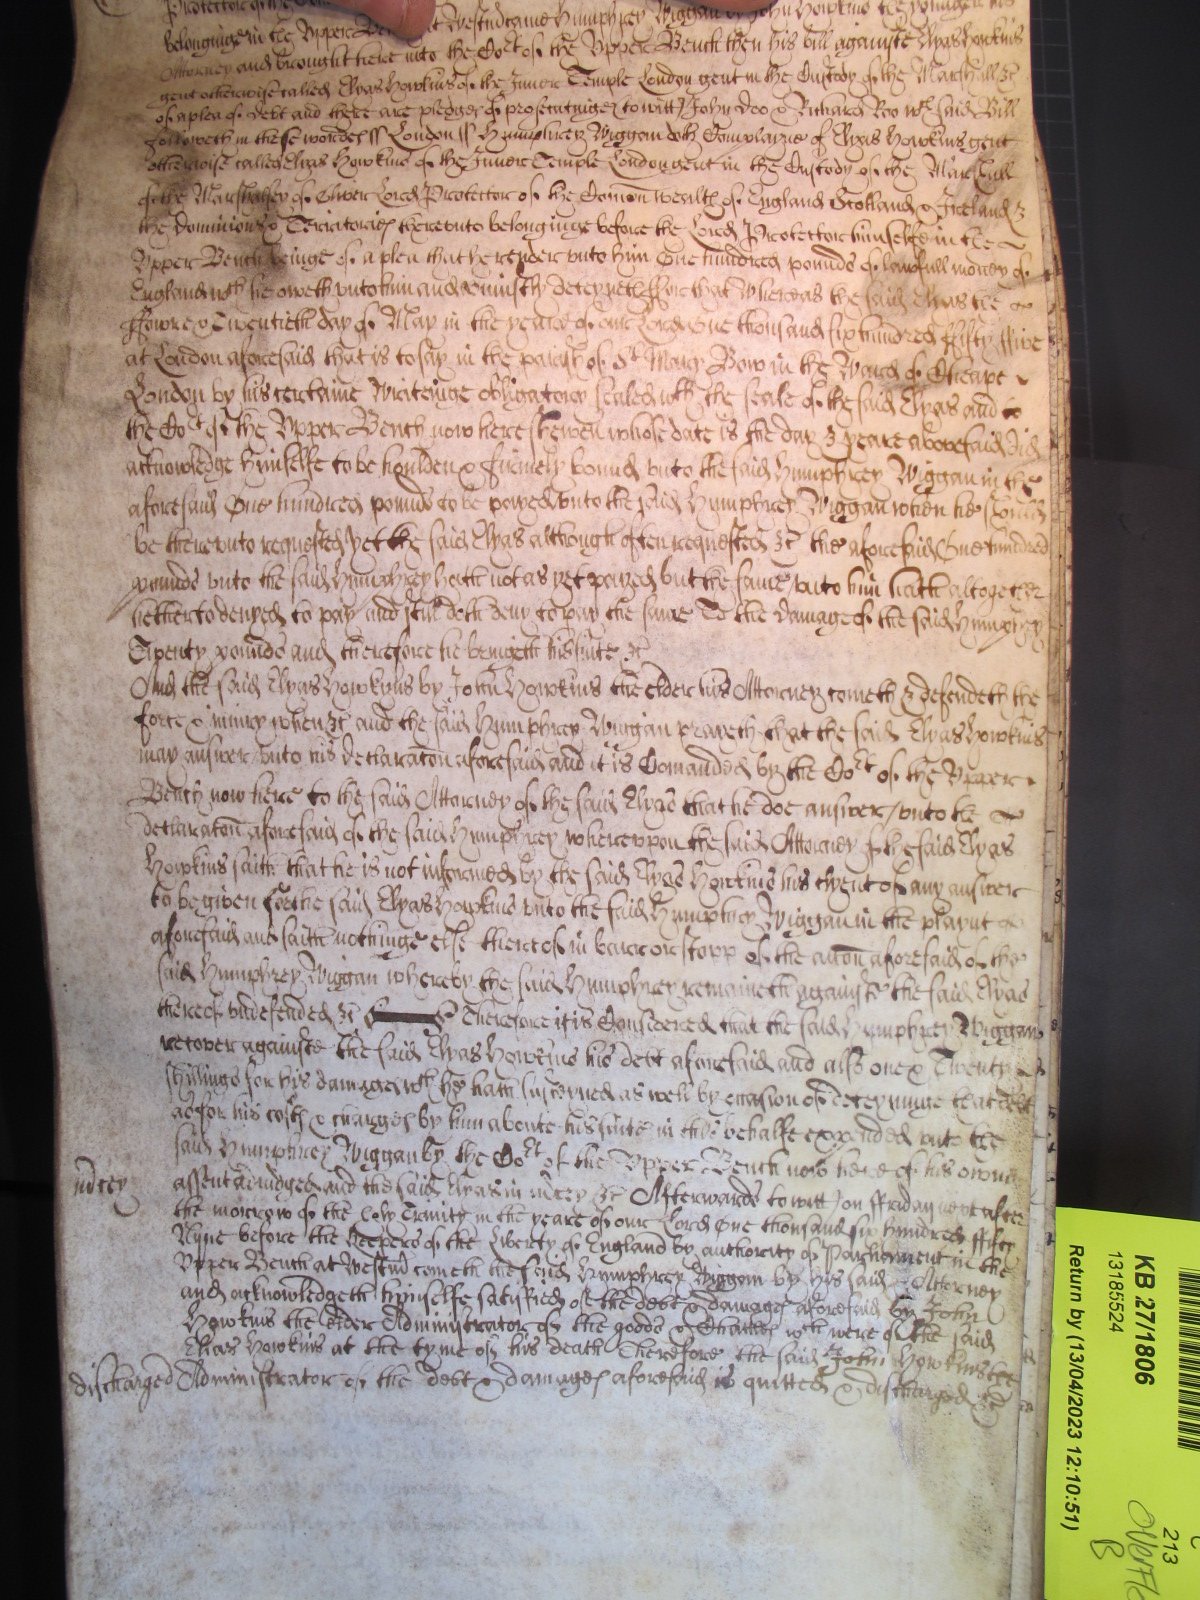 Protector of the
belonginge in the Upper Westm came Humphrey Wiggan by John Howkins the younger his
Attorney and brought here into the Cort of the Upper Bench then his bill againste Elyas Howkins
gent otherwise called Elyas Howkins of the Inner Temple London gent in the Custody of the Marshall &c
of a plea of debt and there are pledges of prosecutinge to witt John Doo & Richard Roo wch said Bill
followeth in these wordes ss London ss Humphrey Wiggan doth Complayne of Elyas Howkins gent
otherwise called Elyas Howkins of the Inner Temple London gent in the Custody of the Marshall
of the Marshalsey of Oliver Lord Protector of the Comon wealth of England Scotland & Ireland &
the Dominions & Territories thereunto belonginge before the Lord Protector himselfe in the
Upper Bench beinge of a plea that he render unto him One hundred pounds of lawfull money of
England wch he oweth unto him and uniustly deteyneth ffor that Whereas the said Elyas the
ffowre & Twentieth day of May in the yeare of our Lord One thousand six hundred ffifty ffive
at London aforesaid that is to say in the parish of St Mary Bow in the Ward of Cheape
London by his certaine Writeinge obligatory sealed with the seale of the said Elyas and to
the Cort of the Upper Bench now here shewen whose date is the day & yeare abovesaid did
acknowledge himselfe to be houlden & firmely bound unto the said Humphrey Wiggan in the
aforesaid One hundred pounds to be payed unto the said Humphrey Wiggan when hee should
be thereunto requested yet the said Elyas although often requested &c the aforesaid One hundred
pounds unto the said Humphrey hath not as yet payed but the same unto him hath altogether
hetherto denyed to pay and still doth deny to pay the same To the damage of the said Humphrey
Twenty pounds and therefore he bringeth his suite &c
And the said Elyas Howkins by John Howkins the elder his Attorney cometh & defendeth the
force & iniury when &c and the said Humphrey Wiggan prayeth that the said Elyas Howkins
may answer unto his declaraton aforesaid and it is Comanded by the Cort of the Upper
Bench now here to the said Attorney of the said Elyas that he doe answer unto the
declaraton aforesaid of the said Humphrey whereupon the said Attorney of the said Elyas
Howkins saith that he is not informed by the said Elyas Howkins his clyent of any answer
to be given for the said Elyas Howkins unto the said Humphrey Wiggan in the playnt
aforesaid and saith nothinge else thereof in barr or stopp of the accon aforesaid of the
said Humphrey Wiggan whereby the said Humphrey remaineth againste the said Elyas
thereof undefended &c Therefore it is Considered that the said Humphrey Wiggan
recover againste the said Elyas Howkins his debt aforesaid and also one & Twenty
shillings for his damages wch he hath susteyned as well by occasion of deteyninge that debt
as for his costs & charges by him aboute his suite in this behalfe expended unto the
said Humphrey Wiggan by the Cort of the Upper Bench now here of his owne
mercy
assent adiudged and the said Elyas in mercy &c Afterwards to witt on ffriday next after
the morrow of the holy Trinity in the yeare of our Lord One thousand six hundred ffifty
Nyne before the Keepers of the Liberty of England by authority of Parliament in the
Upper Bench at Westm cometh the said Humphrey Wiggan by his said Attorney
and acknowledgeth himselfe satisfied of the debt & damages aforesaid by John
Howkins the elder Administrator of the goods & Chattels wch were of the said
Elias Howkins at the tyme of his death Therefore the said John Howkins the
discharged Administrator of the debt & damages aforesaid is quitted & discharged &c
KB 27/1806
13185524
Return by (13/04/2023 12:10:51)
213
B